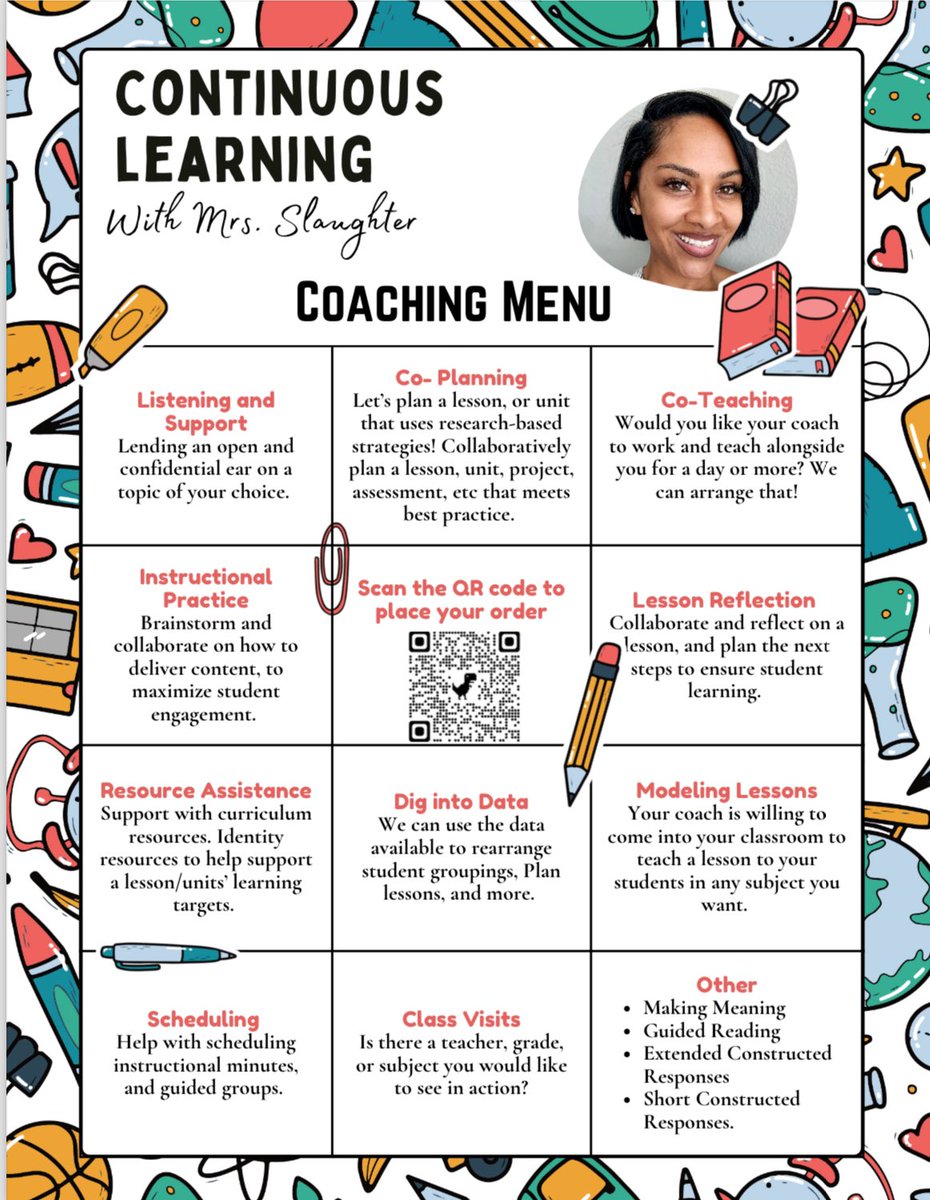 CONTINUOUS
LEARNING
With Mrs. Slaughter
COACHING MENU
Listening and
Support
Lending an open and
confidential ear on a
topic of your choice.
Co- Planning
Let's plan a lesson, or unit
that uses research-based
strategies! Collaboratively
plan a lesson, unit, project,
assessment, etc that meets
best practice.
Co-Teaching
Would you like your coach
to work and teach alongside
you for a day or more? We
can arrange that!
Instructional
Practice
Brainstorm and
collaborate on how to
deliver content, to
maximize student
engagement.
Scan the QR code to
place your order
Lesson Reflection
Collaborate and reflect on a
lesson, and plan the next
steps to ensure student
learning.
Resource Assistance
Support with curriculum
resources. Identity
resources to help support
a lesson/units' learning
targets.
Dig into Data
We can use the data
available to rearrange
student groupings, Plan
lessons, and more.
Modeling Lessons
Your coach is willing to
come into your classroom to
teach a lesson to your
students in any subject you
want.
Scheduling
Help with scheduling
instructional minutes,
and guided groups.
Class Visits
Is there a teacher, grade,
or subject you would like
to see in action?
Other
• Making Meaning
• Guided Reading
• Extended Constructed
Responses
• Short Constructed
Responses.